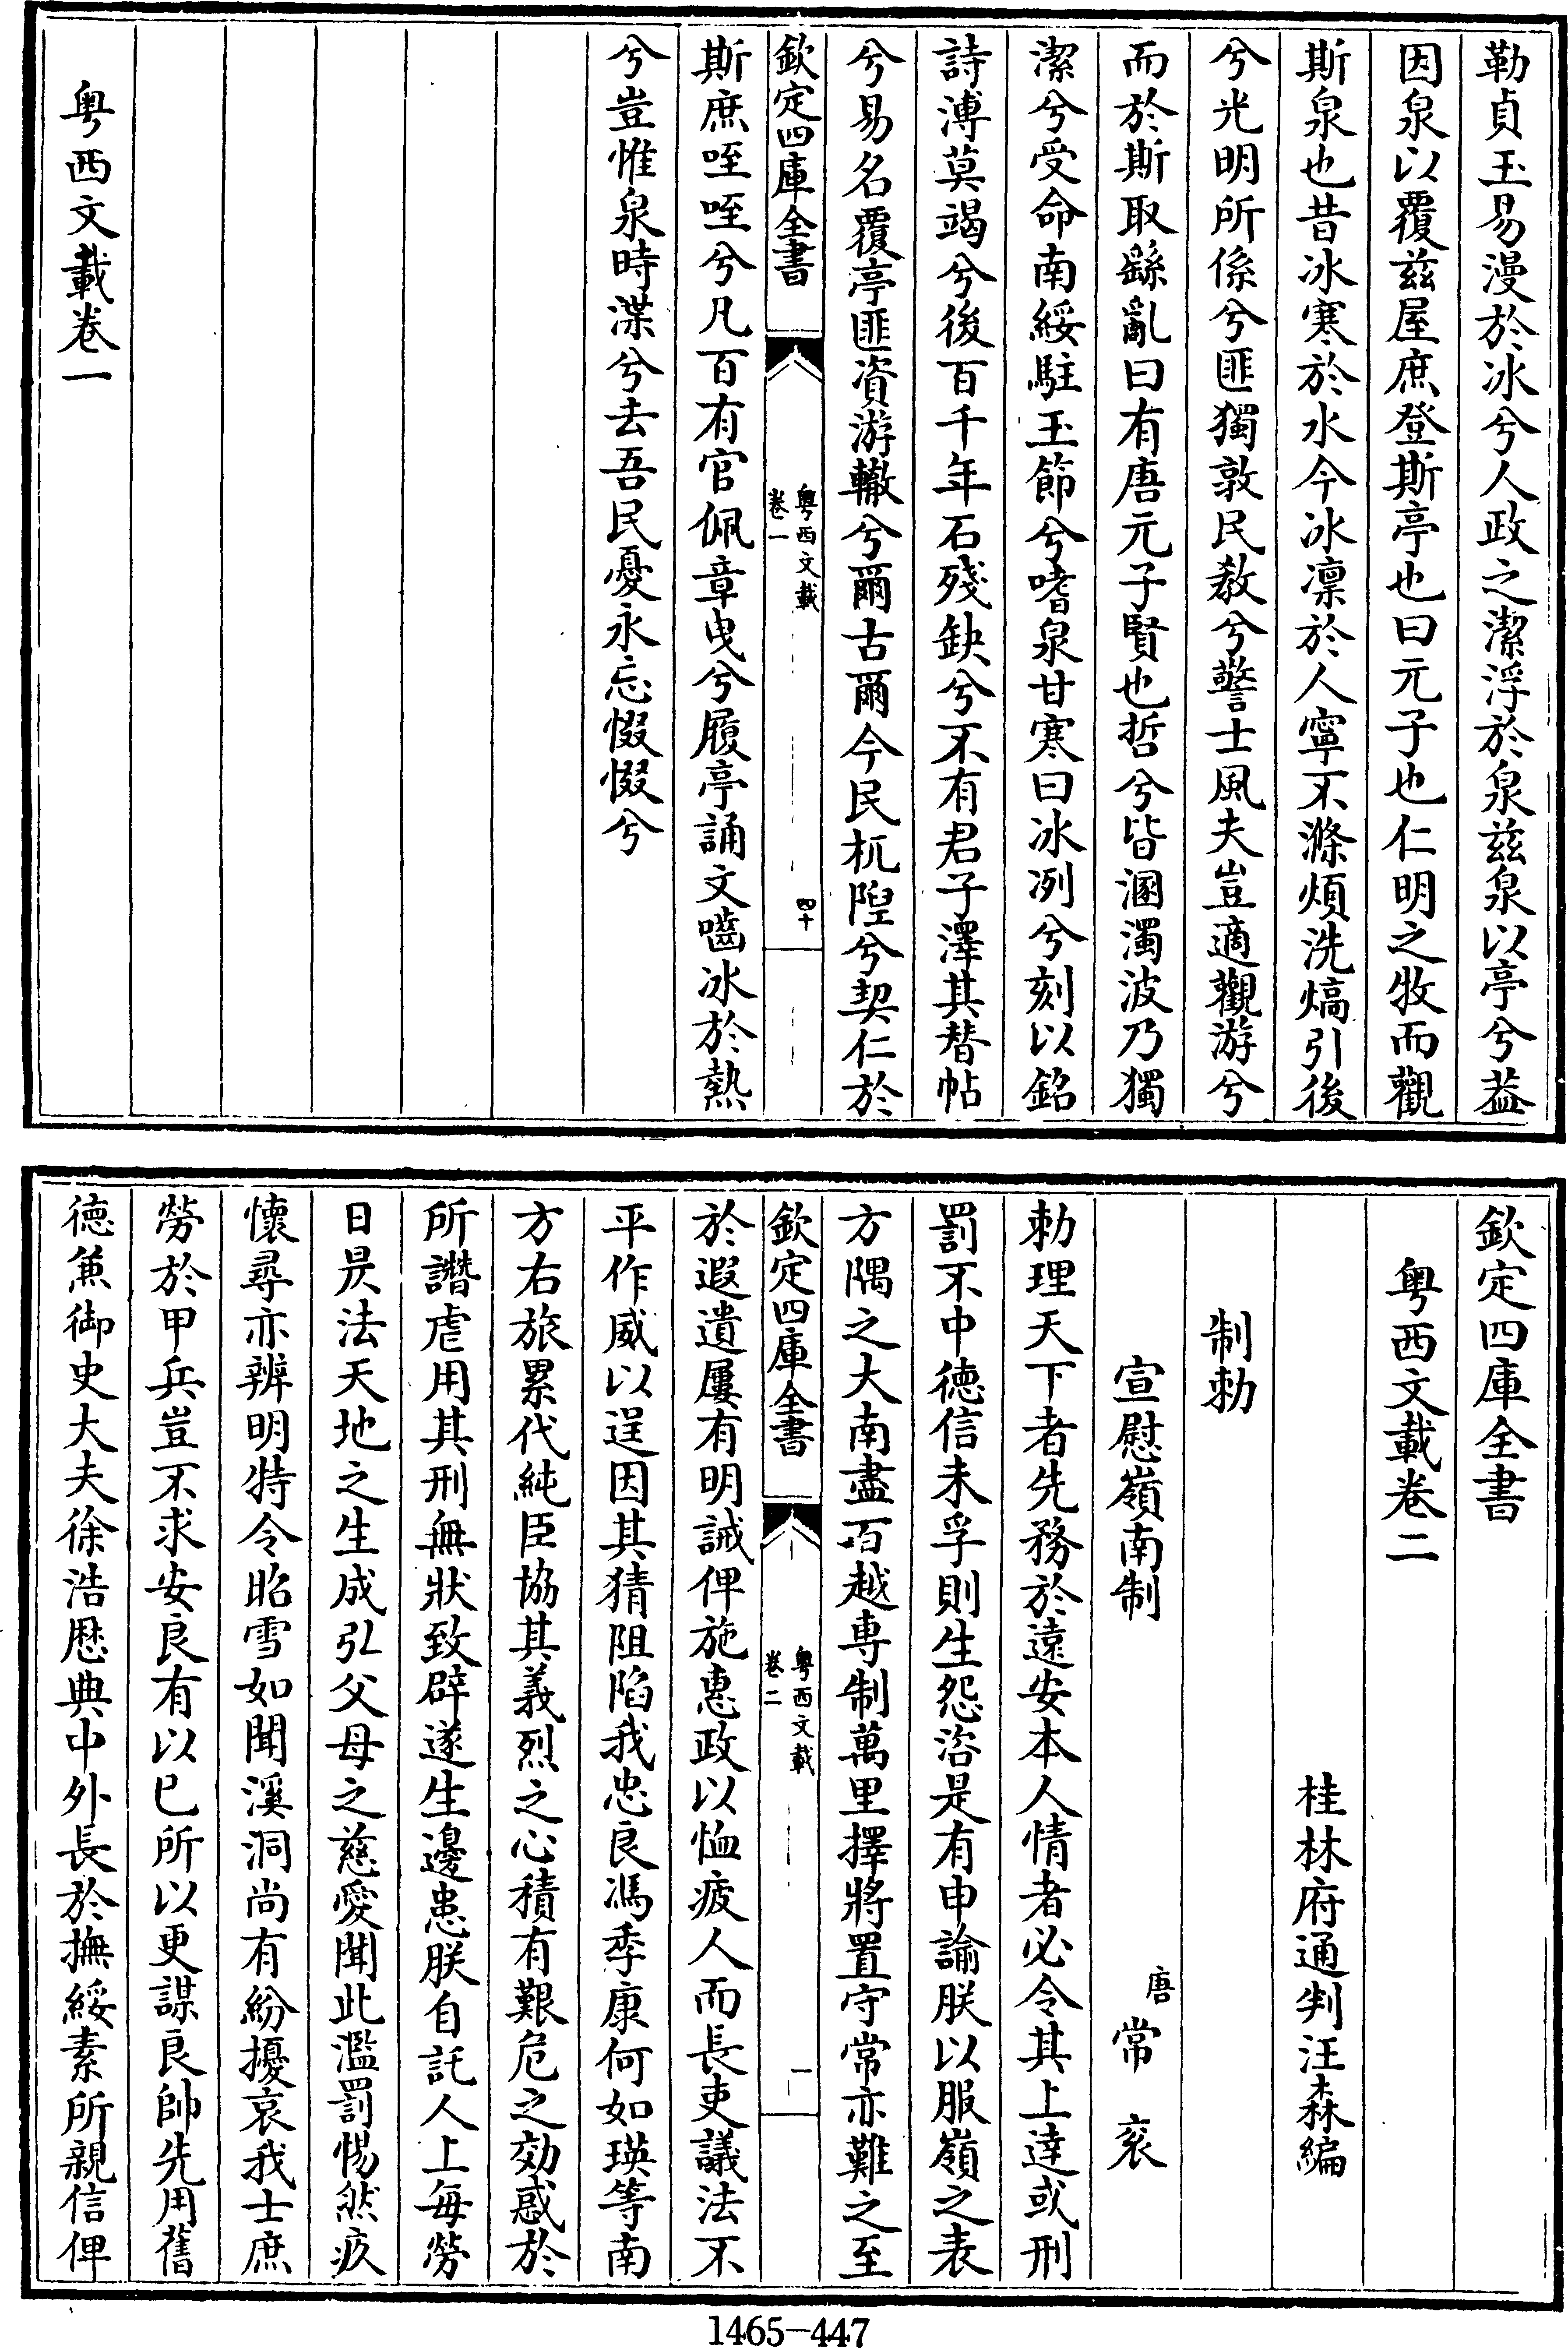 勒貞玉易漫於冰兮人政之潔浮於泉兹泉以亭兮葢
因泉以覆兹屋庶登斯亭也曰元子也仁明之牧而觀
斯泉也昔冰寒於水今冰凛於人寧不滌煩洗熇引後
兮光明所係兮匪獨敦民教兮警士風夫豈適觀游兮
而於斯取繇亂曰有唐元子賢也哲兮皆溷濁波乃獨
潔兮受命南綏駐玉節兮嗜泉甘寒曰冰冽兮刻以銘
詩溥莫竭兮後百千年石殘缺兮不有君子澤其替帖
兮易名覆亭匪資游轍兮爾古爾今民杌隉兮契仁於
欽定四庫全書
粤西文載
卷一
四十
斯庶咥咥兮凡百有官佩章曳兮履亭誦文嚙冰於熱
兮豈惟泉時渫兮去吾民憂永忘惙惙兮
粤西文載卷一
欽定四庫全書
粤西文載卷二
桂林府通判汪森編
制勅
宣慰嶺南制
唐
常衮
勅理天下者先務於遠安本人情者必令其上達或刑
罰不中德信未孚則生怨沴是有申諭朕以服嶺之表
方隅之大南盡百越専制萬里擇將置守常亦難之至
欽定四庫全書
粤西文載
卷二
一
於遐遺屢有明誡俾施惠政以恤疲人而長吏議法不
平作威以逞因其猜阻陷我忠良馮季康何如瑛等南
方右旅累代純臣協其義烈之心積有艱危之効惑於
所譖虐用其刑無狀致辟遂生邊患朕自託人上每勞
日昃法天地之生成弘父母之慈愛聞此濫罰惕然疚
懷尋亦辨明特令昭雪如聞溪洞尚有紛擾哀我士庶
勞於甲兵豈不求安良有以已所以更謀良帥先用舊
德兼御史大夫徐浩歷典中外長於撫綏素所親信俾
1465-447